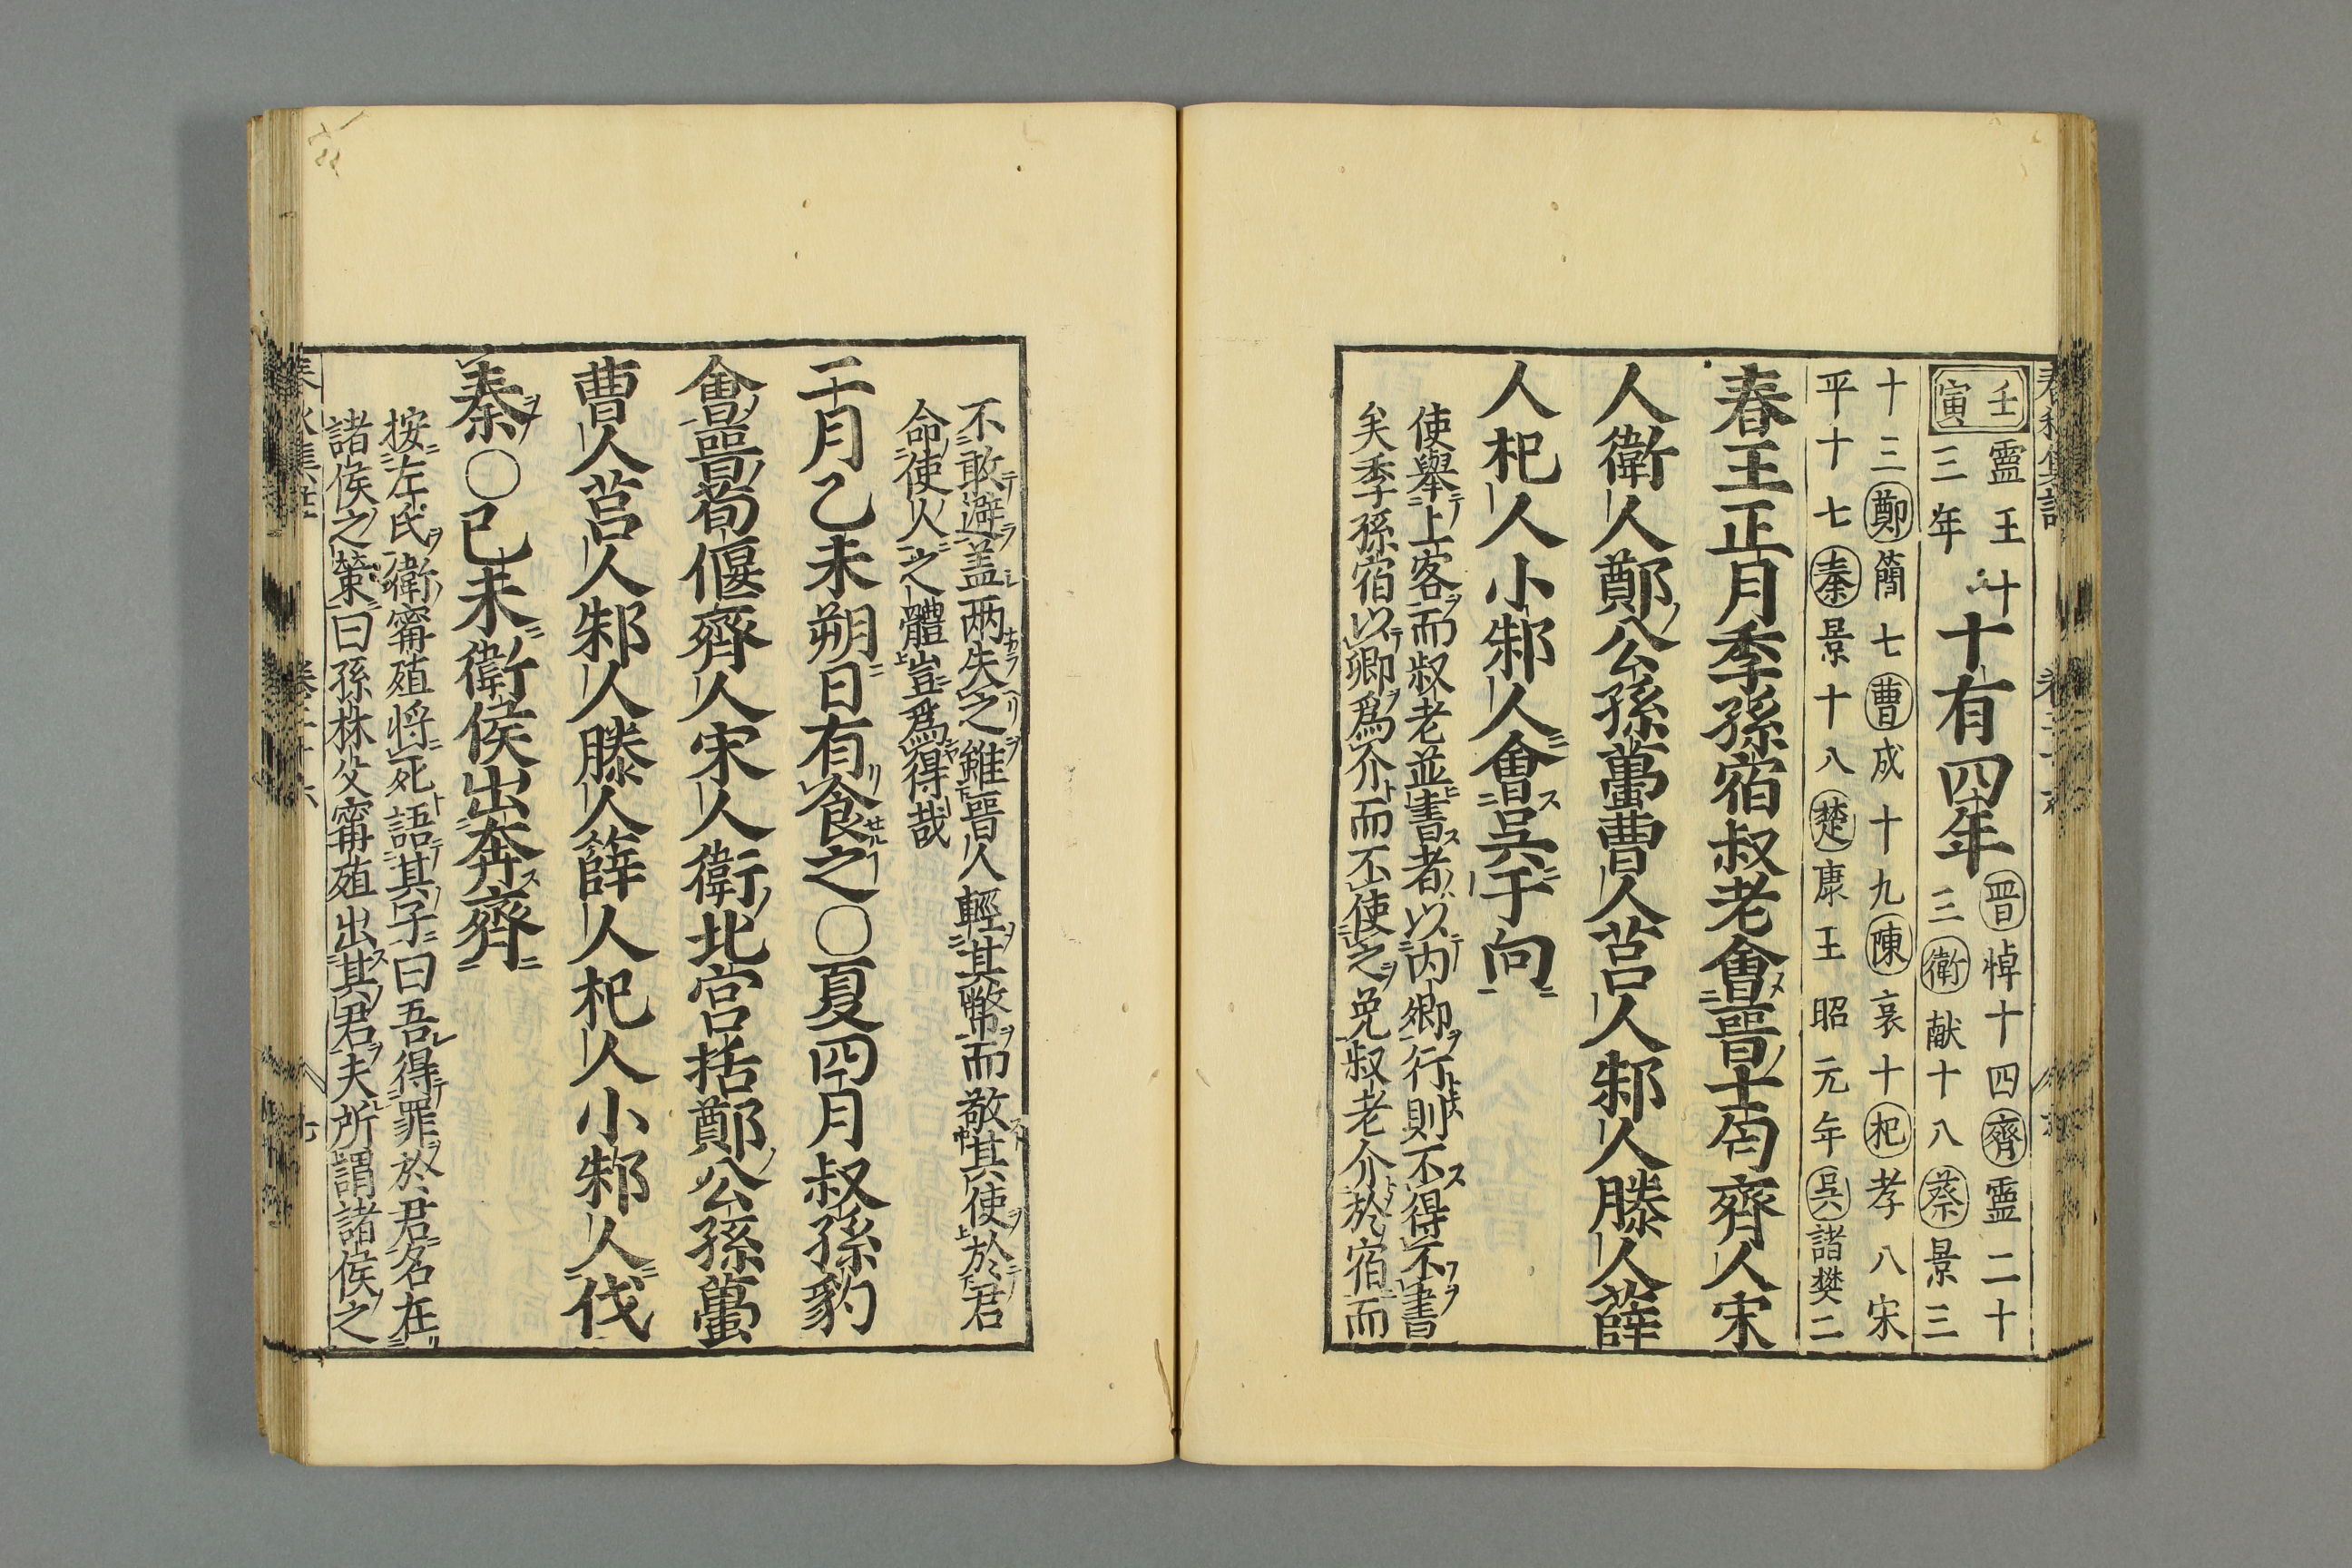 壬寅
靈王十三年
十有四年
晋悼十四齊靈二十
三衛献十八蔡景三
十三鄭簡七曹成十九陳哀十杞孝八宋
平十七秦景十八楚康王昭元年呉諸樊二
春王正月季孫宿叔老會晋士匄齊人宋
人衛人鄭公孫蠆曹人莒人邾人滕人薛
人杞人小邾人會呉于向
使舉上客而叔老並書者以内卿行則不得不書
矣季孫宿以卿爲介而不使之免叔老介於宿而
不敢避盖两失之雖晋人輕其幣而敬其使於君
命使人之體豈爲得哉
二月乙未朔日有食之○夏四月叔孫豹
會晋荀偃齊人宋人衛北宮括鄭公孫蠆
曹人莒人邾人滕人薛人杞人小邾人伐
秦○已未衛侯出奔齊
按左氏衛甯殖将死語其子曰吾得罪於君名在
諸侯之策曰孫林父甯殖出其君夫所謂諸侯之